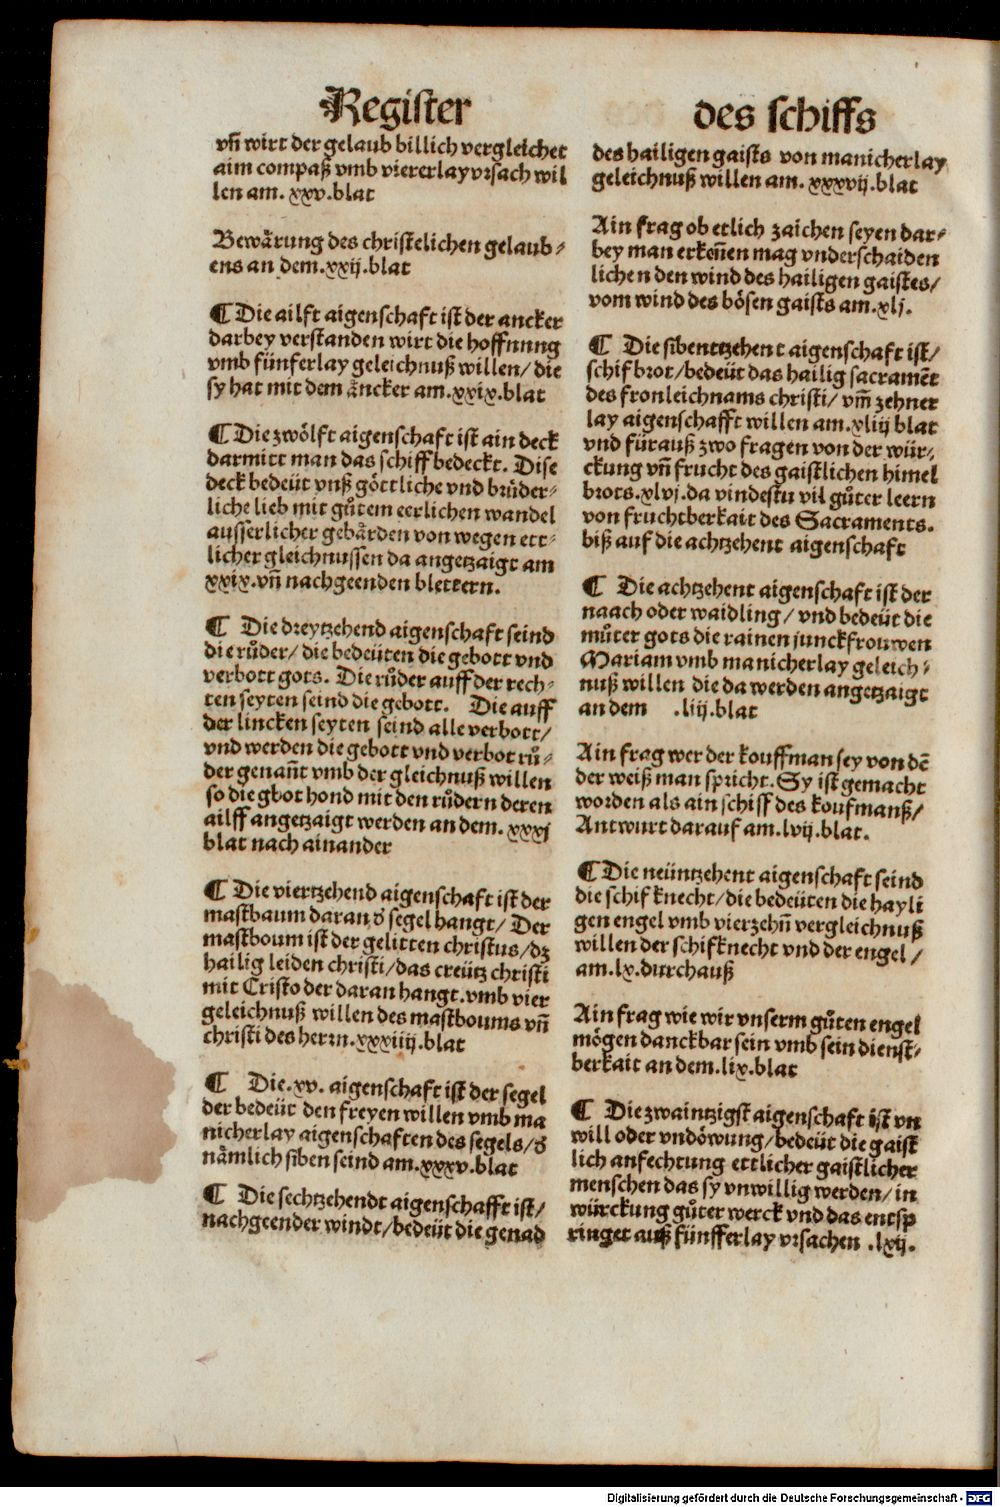 Register
vñ wirt der gelaub billich vergleichet
aim compaß vmb viererlay vrsach wil
len am. xxv.blat
Bewärung des christelichen gelaub⸗
ens an dem.xxij.blat
¶ Die ailft aigenschaft ist der ancker
darbey verstanden wirt die hoffnung
vmb fünferlay geleichnuß willen/ die
sy hat mit dem äncker am.xxix.blat
¶ Die zwölft aigenschaft ist ain deck
darmitt man das schiff bedeckt. Dise
deck bedeüt vnß göttliche vnd brüder⸗
liche lieb mit gůtem eerlichen wandel
ausserlicher gebärden von wegen ett⸗
licher gleichnussen da angetzaigt am
xxix.vñ nachgeenden blettern.
¶ Die dreytzehend aigenschaft seind
die růder/ die bedeüten die gebott vnd
verbott gots. Die růder auff der rech⸗
ten seyten seind die gebott. Die auff
der lincken seyten seind alle verbott/
vnd werden die gebott vnd verbot rů⸗
der genañt vmb der gleichnuß willen
so die gbot hond mit den růdern deren
ailff angetzaigt werden an dem. xxxj
blat nach ainander
¶ Die viertzehend aigenschaft ist der
mastbaum daran d̕ segel hangt/ Der
mastboum ist der gelitten christus/dz
hailig leiden christi/das creütz christi
mit Cristo der daran hangt.vmb vier
geleichnuß willen des mastboums vñ
christi des herrn.xxxiiij.blat
¶ Die.xv. aigenschaft ist der segel
der bedeüt den freyen willen vmb ma
nicherlay aigenschaften des segels/d̕
nämlich siben seind am.xxxv.blat
¶ Die sechtzehendt aigenschafft ist/
nachgeender windt/bedeüt die genad
des schiffs
des hailigen gaists von manicherlay
geleichnuß willen am. xxxvij.blat
Ain frag ob etlich zaichen seyen dar⸗
bey man erkeñen mag vnderschaiden
lichen den wind des hailigen gaistes/
vom wind des bösen gaists am.xlj.
¶ Die sibenttzehent aigenschaft ist/
schif brot/bedeüt das hailig sacramēt
des fronleichnams christi/ vm̃ zehner
lay aigenschafft willen am.xliij blat
vnd fürauß zwo fragen von der wür⸗
ckung vñ frucht des gaistlichen himel
brots.xlvj.da vindestu vil gůter leern
von fruchtberkait des Sacraments.
biß auf die achtzehent aigenschaft
¶ Die achtzehent aigenschaft ist der
naach oder waidling/ vnd bedeüt die
můter gots die rainen junckfrouwen
Mariam vmb manicherlay geleich⸗
nuß willen die da werden angetzaigt
an dem .liij.blat
Ain frag wer der kouffman sey von dē
der weiß man spricht. Sy ist gemacht
worden als ain schiff des koufmanß/
Antwurt darauf am.lvij.blat.
¶ Die neüntzehent aigenschaft seind
die schif knecht/die bedeüten die hayli
gen engel vmb vierzehñ vergleichnuß
willen der schifknecht vnd der engel/
am.lx.durchauß
Ain frag wie wir vnserm gůten engel
mögen danckbar sein vmb sein dienst⸗
berkait an dem.lix.blat
¶ Die zwaintzigst aigenschaft ist vn
will oder vndöwung/bedeüt die gaist
lich anfechtung ettlicher gaistlicher
menschen das sy vnwillig werden/in
würckung gůter werck vnd das entsp
ringet auß fünfferlay vrsachen .lxij.
Digitalisierung gefördert durch die Deutsche Forschungsgemeinschaft - DFG